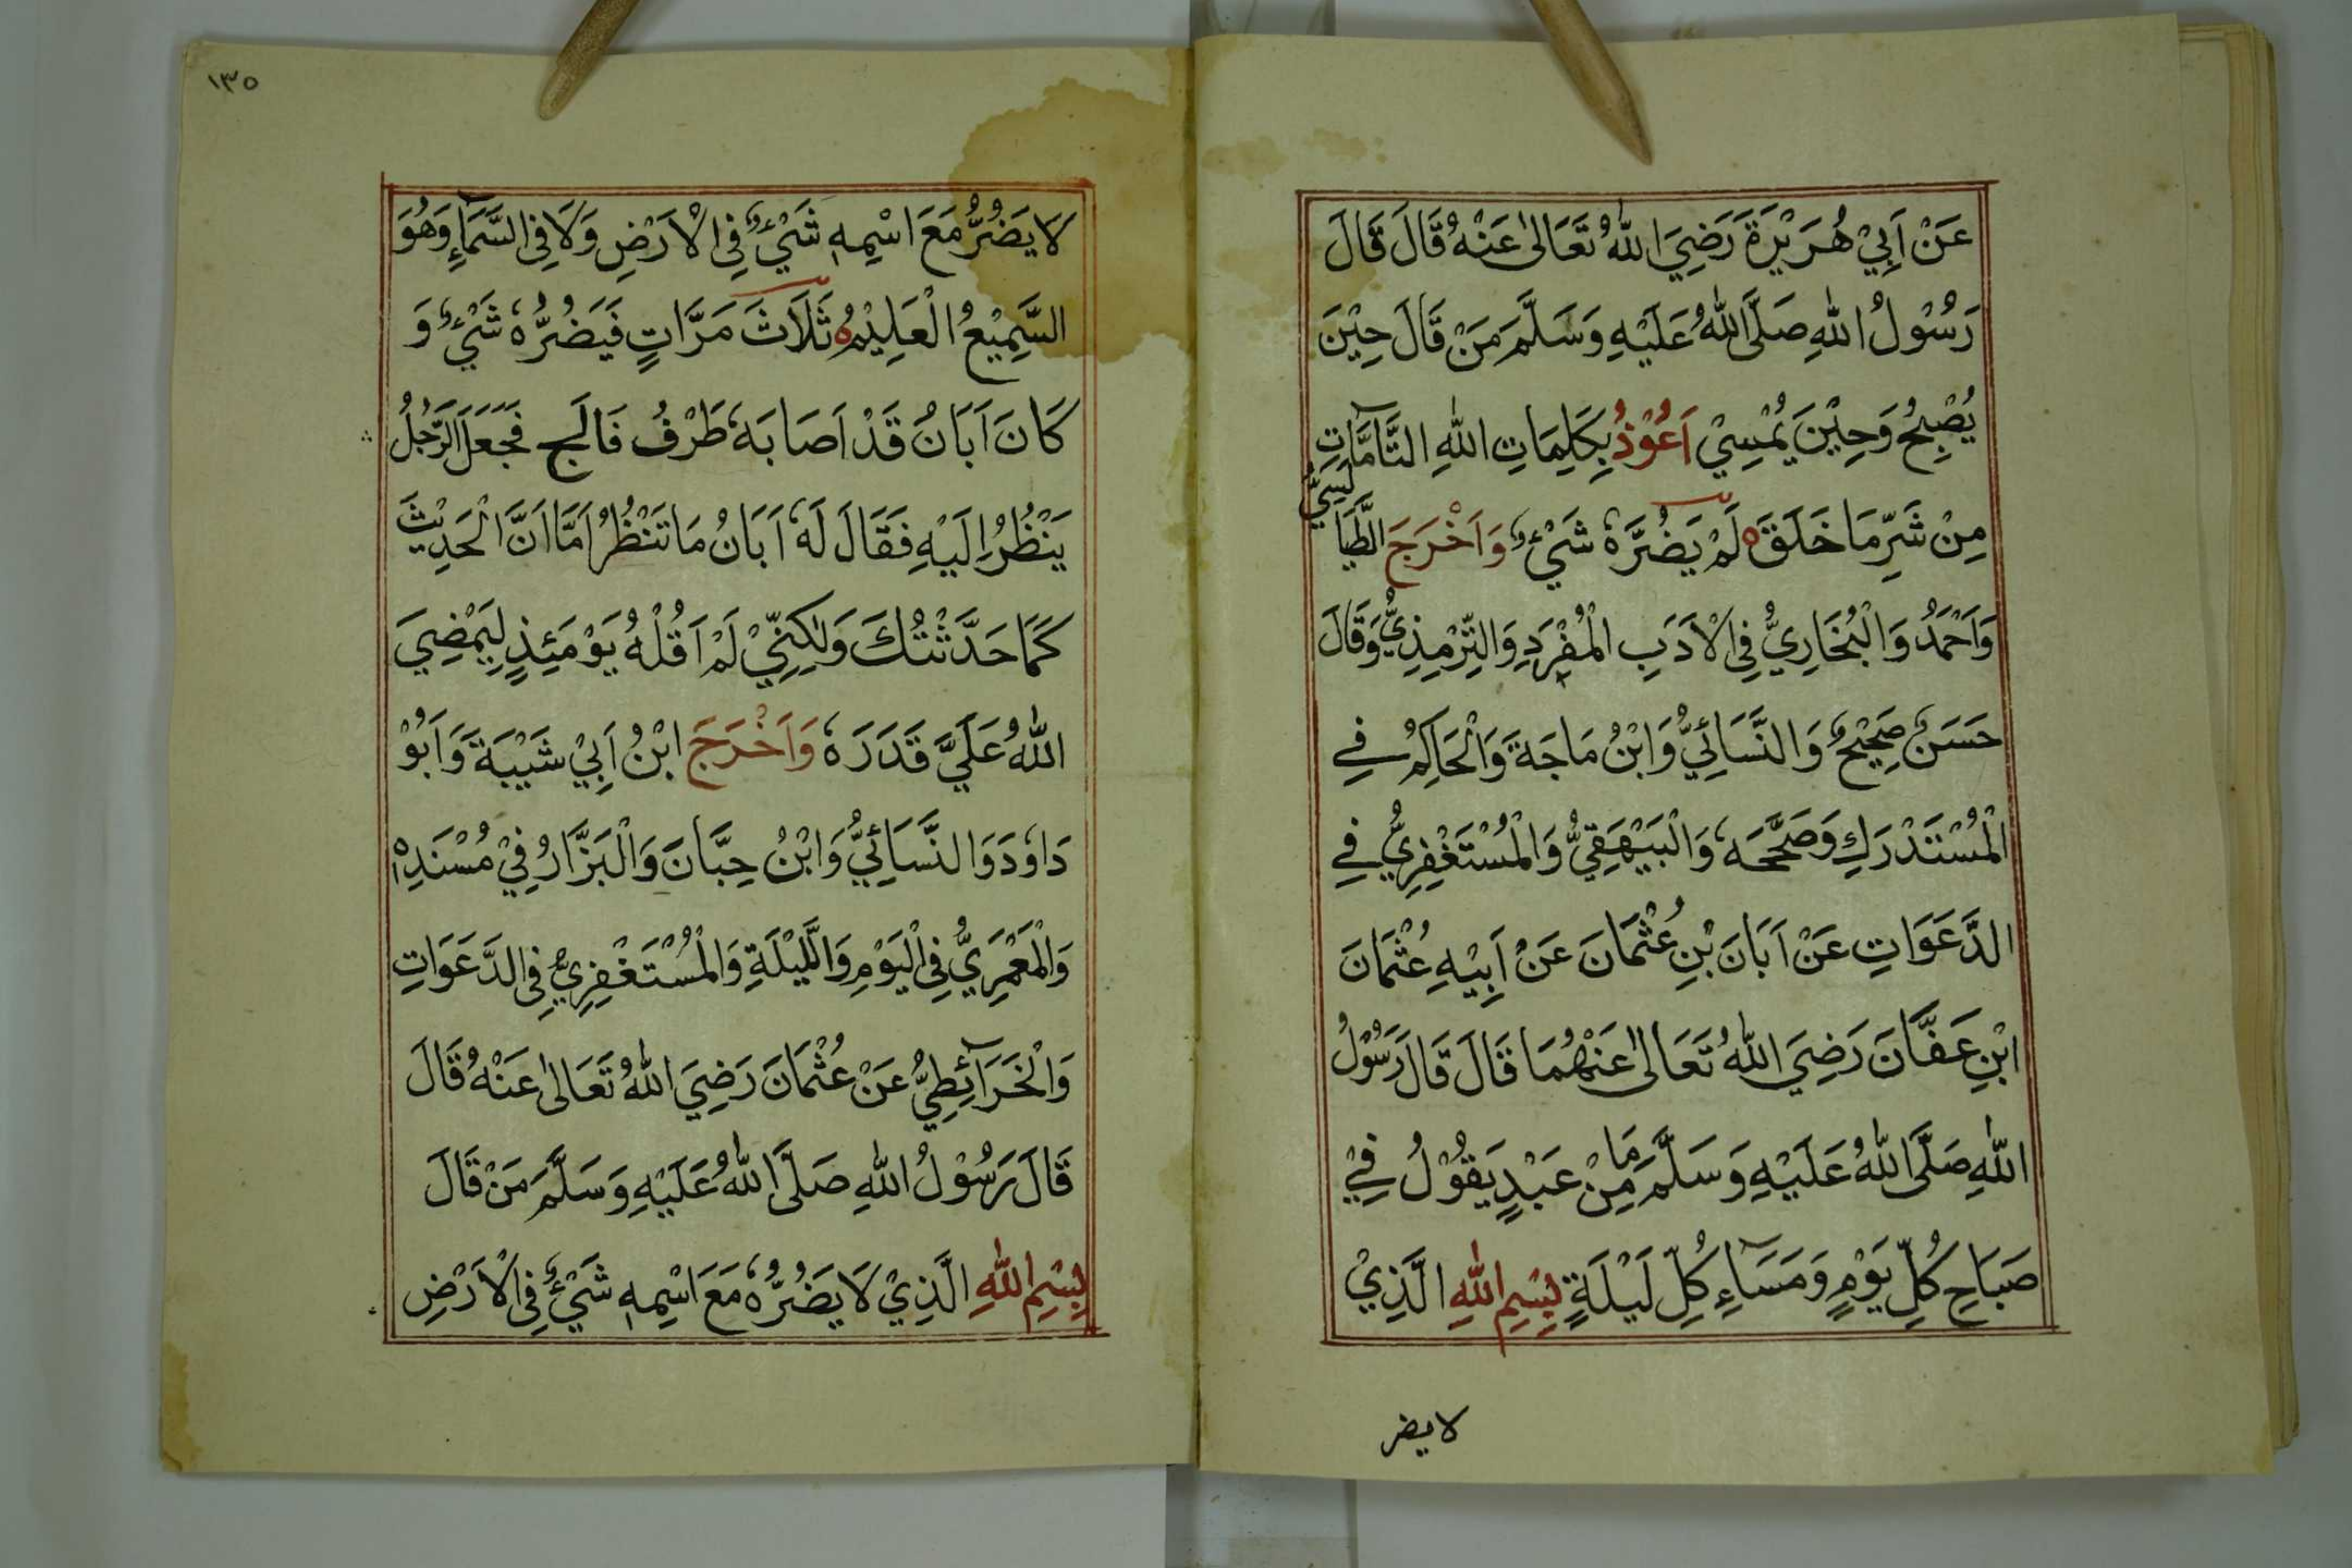 عَنْ اَبِيْ هُرَيْرَةَ رَضِيَ اللّٰهُ تَعَالٰى عَنْهُ قَالَ قَالَ
رَسُوْلُ اللّٰهِ صَلَّى اللّٰهُ عَلَيْهِ وَسَلَّمَ مَنْ قَالَ حِيْنَ
يُصْبِحُ وَحِيْنَ يُمْسِيْ اَعُوْذُ بِكَلِمَاتِ اللّٰهِ التَّآمَّاتِ
مِنْ شَرِّ مَا خَلَقَ ه لَمْ يَضُرَّهٗ شَيْءٌ وَاَخْرَجَ الطَّيَالِسِيُّ
وَاَحْمَدُ وَالْبُخَارِيُّ فِي الْاَدَبِ الْمُفْرَدِ وَالتِّرْمِذِيُّ وَقَالَ
حَسَنٌ صَحِيْحٌ وَالنَّسَائِيُّ وَابْنُ مَاجَةَ وَالْحَاكِمُ فِي
الْمُسْتَدْرَكِ وَصَحَّحَهٗ وَالْبَيْهَقِيُّ وَالْمُسْتَغْفِرِيُّ فِي
الدَّعَوَاتِ عَنْ اَبَانَ بْنِ عُثْمَانَ عَنْ اَبِيْهِ عُثْمَانَ
ابْنِ عَفَّانَ رَضِيَ اللّٰهُ تَعَالٰى عَنْهُمَا قَالَ قَالَ رَسُوْلُ
اللّٰهِ صَلَّى اللّٰهُ عَلَيْهِ وَسَلَّمَ مَا مِنْ عَبْدٍ يَقُوْلُ فِيْ
صَبَاحِ كُلِّ يَوْمٍ وَمَسَآءِ كُلِّ لَيْلَةٍ بِسْمِ اللّٰهِ الَّذِيْ
لا يضر
١٣٥
لَا يَضُرُّ مَعَ اسْمِهٖ شَيْءٌ فِي الْاَرْضِ وَلَا فِي السَّمَآءِ وَهُوَ
السَّمِيْعُ الْعَلِيْمُ ه ثَلَاثَ مَرَّاتٍ فَيَضُرُّهٗ شَيْءٌ وَ
كَانَ اَبَانُ قَدْ اَصَابَهٗ طَرْفُ فَالَجٍ فَجَعَلَ الرَّجُلُ
يَنْظُرُ اِلَيْهِ فَقَالَ لَهٗ اَبَانُ مَا تَنْظُرُ اَمَّا اَنَّ الْحَدِيْثَ
كَمَا حَدَّثْتُكَ وَلٰكِنِّيْ لَمْ اَقُلْهُ يَوْمَئِذٍ لِيَمْضِيَ
اللّٰهُ عَلَيَّ قَدَرَهٗ وَاَخْرَجَ ابْنُ اَبِيْ شَيْبَةَ وَاَبُوْ
دَاوٗدَ وَالنَّسَائِيُّ وَابْنُ حِبَّانَ وَالْبَزَّارُ فِيْ مُسْنَدِهٖ
وَالْمَعْمَرِيُّ فِي الْيَوْمِ وَاللَّيْلَةِ وَالْمُسْتَغْفِرِيُّ فِي الدَّعَوَاتِ
وَالْخَرَآئِطِيُّ عَنْ عُثْمَانَ رَضِيَ اللّٰهُ تَعَالٰى عَنْهُ قَالَ
قَالَ رَسُوْلُ اللّٰهِ صَلَّى اللّٰهُ عَلَيْهِ وَسَلَّمَ مَنْ قَالَ
بِسْمِ اللّٰهِ الَّذِيْ لَا يَضُرُّهٗ مَعَ اسْمِهٖ شَيْءٌ فِي الْاَرْضِ